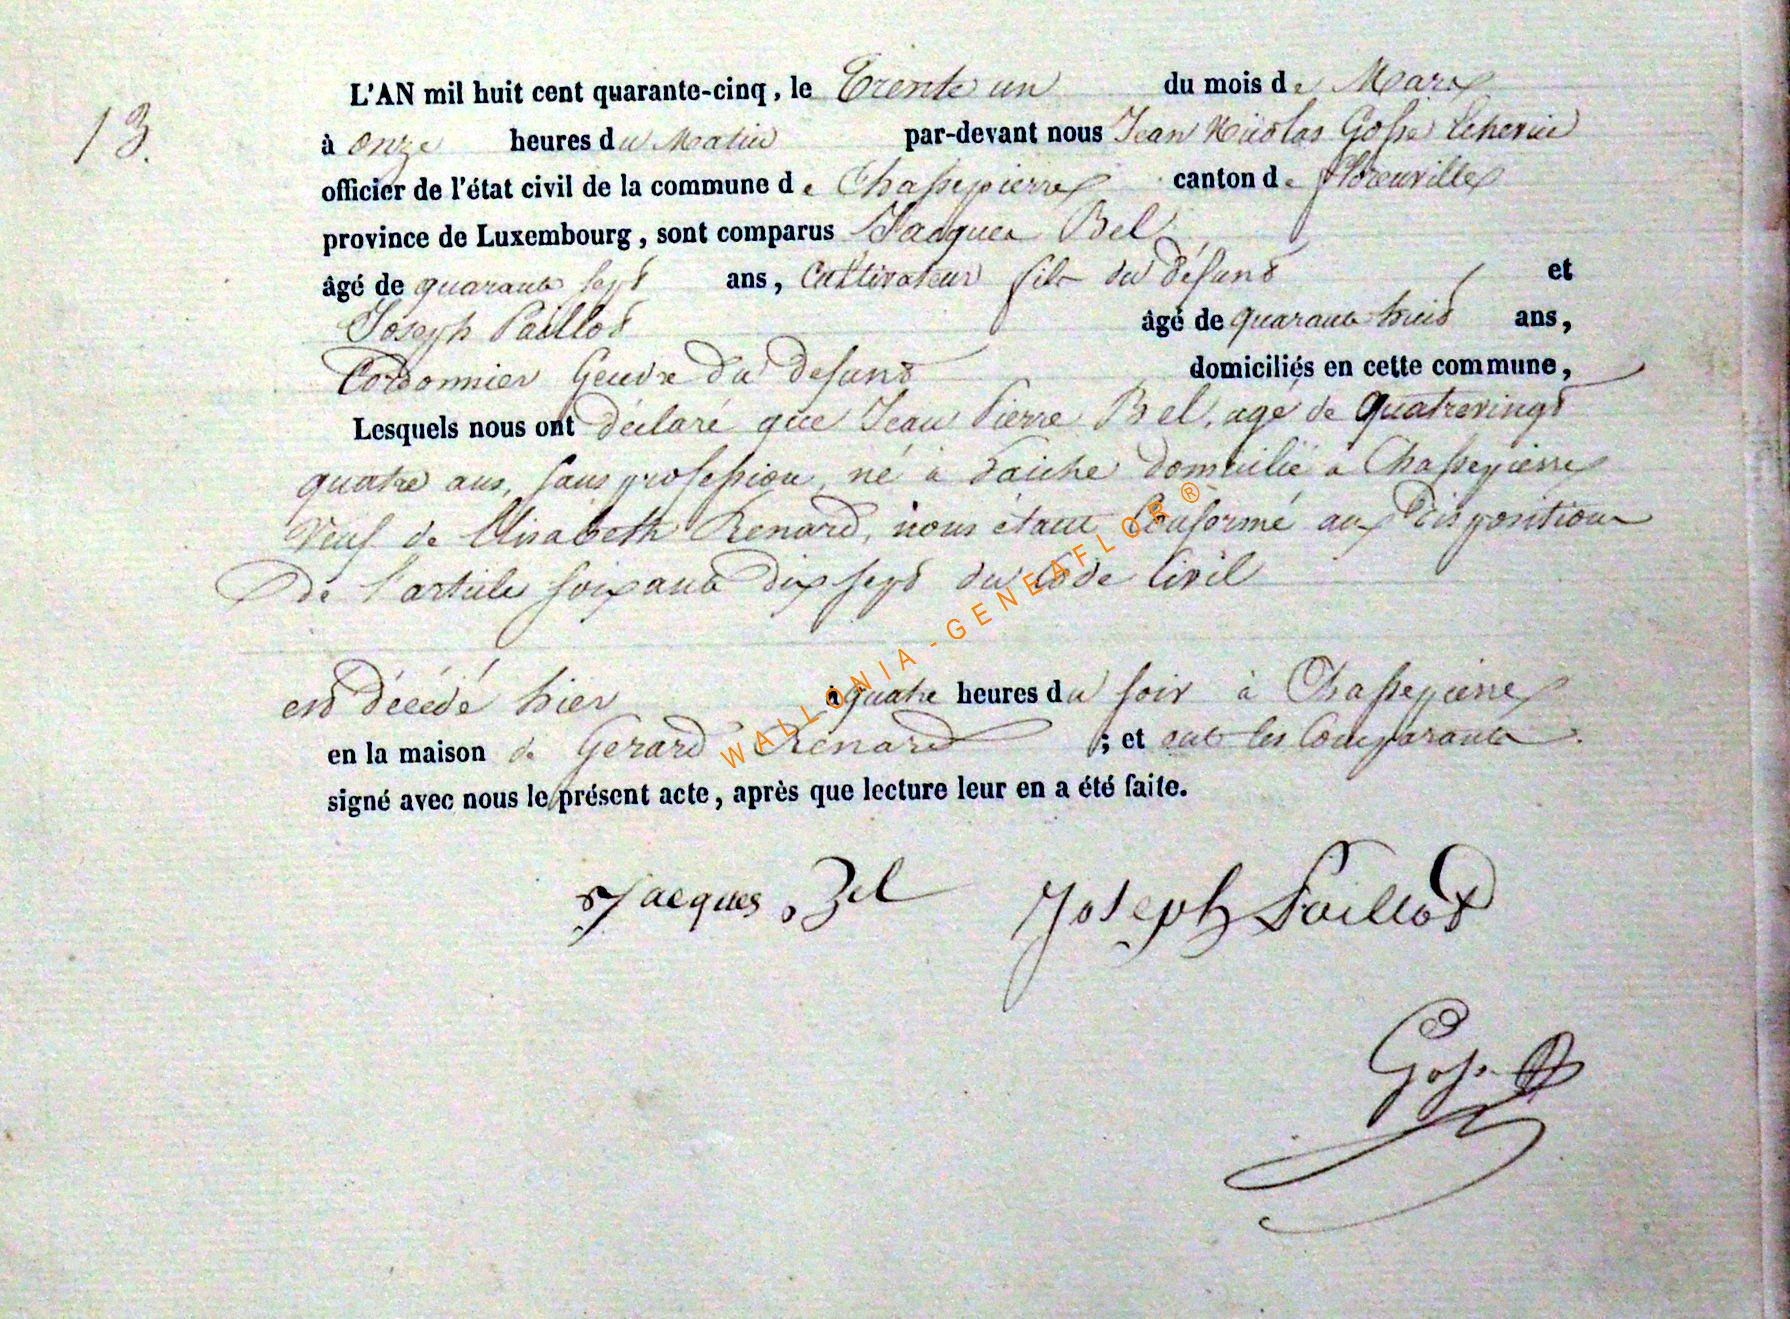 13.
L'AN mil huit cent quarante-cinq, le Trente un du mois de Mars
à onze heures du Matin par-devant nous Jean Nicolas Gosse Echevin
officier de l'état civil de la commune de Chassepierre canton de Florenville
province de Luxembourg, sont comparus Jacques Bel
âgé de quarante sept ans, Cultivateur fils du défunt et
Joseph Paillot âgé de quarante huit ans,
Cordonnier Gendre du défunt domiciliés en cette commune,
Lesquels nous ont déclaré que Jean Pierre Bel, agé de Quatrevingt
quatre ans, sans profession, né à Laiche domicilié a Chassepierre
Veuf de Elisabeth Renard, nous étant Conformé aux Disposition
De l'article soixante dix sept du Code Civil
est décédé hier à quatre heures du soir à Chassepierre
en la maison de Gerard Renard ; et ont les Comparants
signé avec nous le présent acte, après que lecture leur en a été faite.
Jacques Bel Joseph Paillot
Gosse
WALLONIA-GENEAFLOR ®